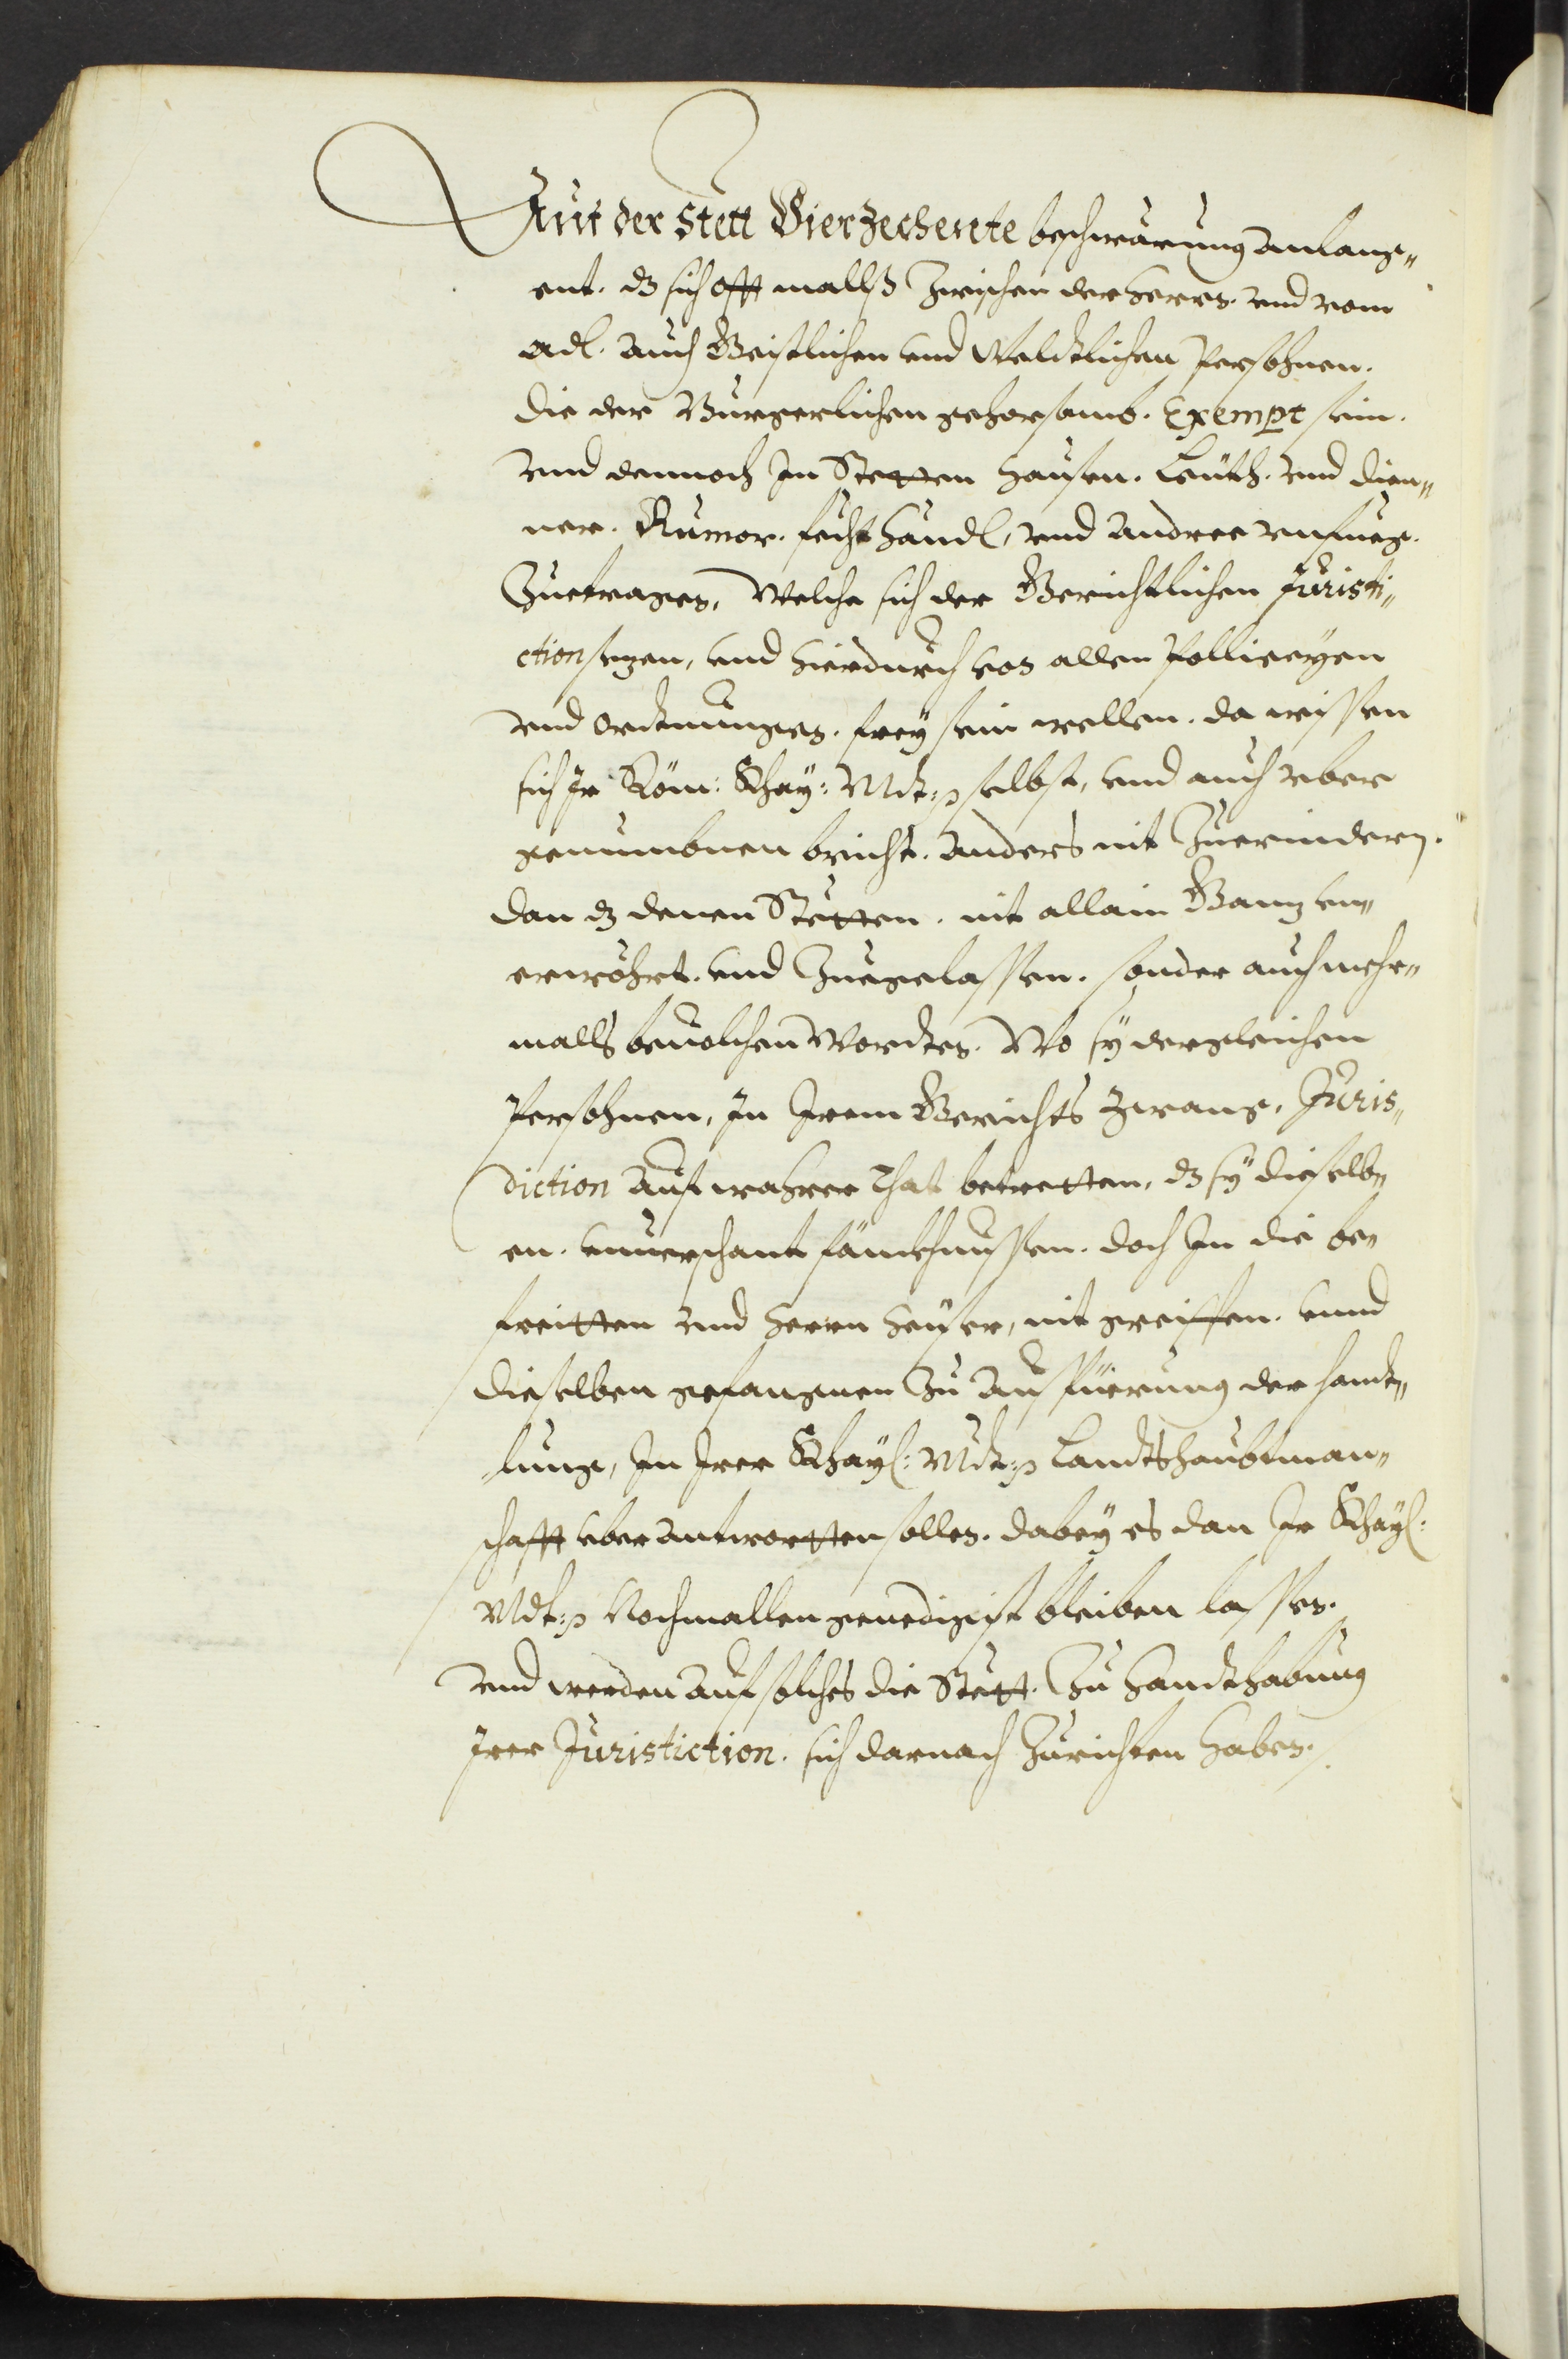 Auf der Stett Vierzechente beschwärung anlang„
ent. dz sich offt mallß Zwischen der herrn. vnd vom
Adl. auch Geistlichen vnd Weldtlichen Persohnen.
die der Burgerlichen gehorsamb. Exempt sein.
vnd dennoch Jn Stetten hausen. Leüth. vnd dien„
ner. Rumor. fecht händl, vnd andree vnfueg.
Zuetragen, Welche sich der Gerichtlichen Juristi„
ction sezen, vnd hierdurch von allen Polliceyen
vnd ordtnungen. frey sein wellen. da wissen
sich Jr Röm: Khay: Mdt: selbst, vnd auch vber
genumbnen bricht. anders nit Zuerindern.
dan dz denen Stetten. nit allain Ganz vn„
erwöhrt. vnd Zuegelassen. sonder auch mehr„
malls beuolchen Wordten. Wo sy dergleichen
Persohnen, Jn Jrem Gerichts Zwang, Juris„
diction auf wahrer That betretten, dz sy dieselb„
en. vnuerschant fänckhnussen. doch Jn die be„
freitten vnd herrn heüser, nit greiffen. vnnd
dieselben gefangnen Zu ausfüerung der handt„
lung, Jn Jrer Khayl: Mdt: Landtshaubtman„
schafft vber antwortten sollen. dabey es dan Jr Khayl:
Mdt: Nochmallen genedigist bleiben lassen.
vnd werden auf solches die Stett. Zu handthabung
Jrer Juristiction. sich darnach Zurichten haben.